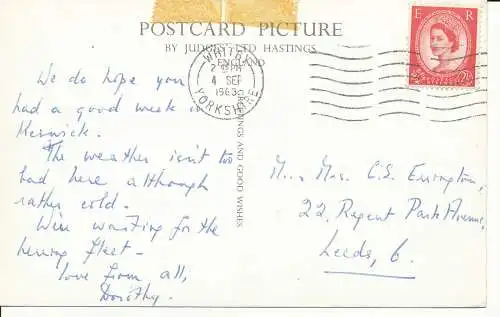 POSTCARD PICTURE
BY JUDGES LTD HASTINGS
ENGLAND
WHITBY
4 SEP
1963
YORKSHIRE
E R
2½ 2½
GREETINGS AND GOOD WISHES
We do hope you
had a good week in
Keswick.
The weather isn't too
bad here although
rather cold.
We're waiting for the
herring fleet -
love from all,
Dorothy.
Mrs. C.S. Errington,
22, Regent Park Avenue,
Leeds, 6.